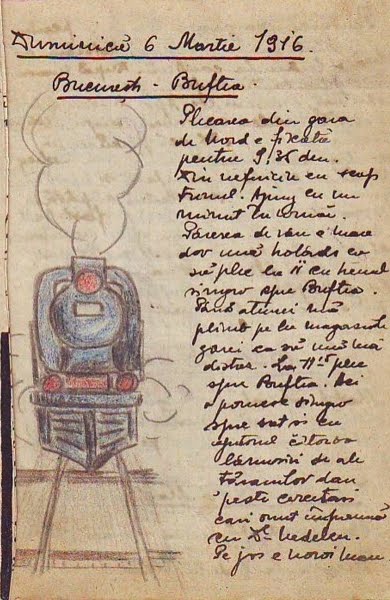 Duminică 6 Martie 1916.
București - Buftea.
Plecarea din gara
de Nord e fixată
pentru 9,35 dim.
Din nefericire eu scap
trenul. Ajung cu un
minut în urmă.
Părerea de rău e mare
dar mă hotărăsc ca
să plec la 11 cu trenul
singur spre Buftea.
Până atunci mă
plimb pe la magazinul
gării ca să mă mai
distrez. La 11 plec
spre Buftea. Aci
o pornesc singur
spre sat și cu
ajutorul câtorva
lămuriri de ale
țăranilor dau
peste cercetași
cari sunt împreună
cu Dl Nedelcu.
Pe jos e noroi mare